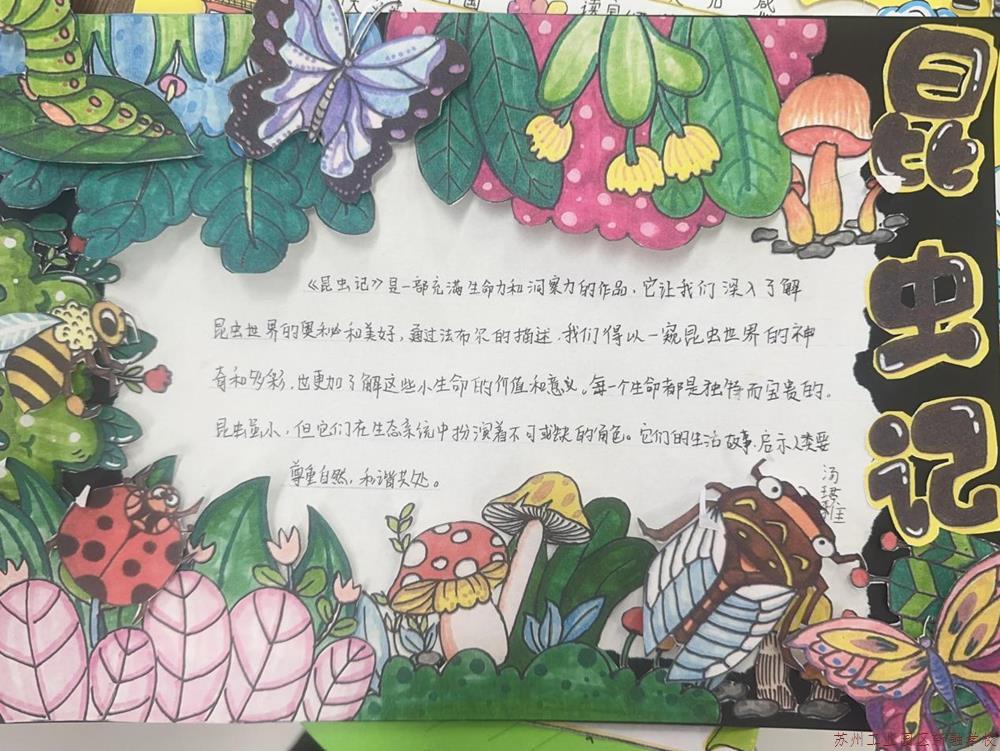 昆虫记
《昆虫记》是一部充满生命力和洞察力的作品,它让我们深入了解
昆虫世界的奥秘和美好,通过法布尔的描述,我们得以一窥昆虫世界的神
奇和多彩,也更加了解这些小生命的价值和意义。每一个生命都是独特而宝贵的。
昆虫虽小,但它们在生态系统中扮演着不可或缺的角色。它们的生活故事,启示人类要
尊重自然,和谐共处。